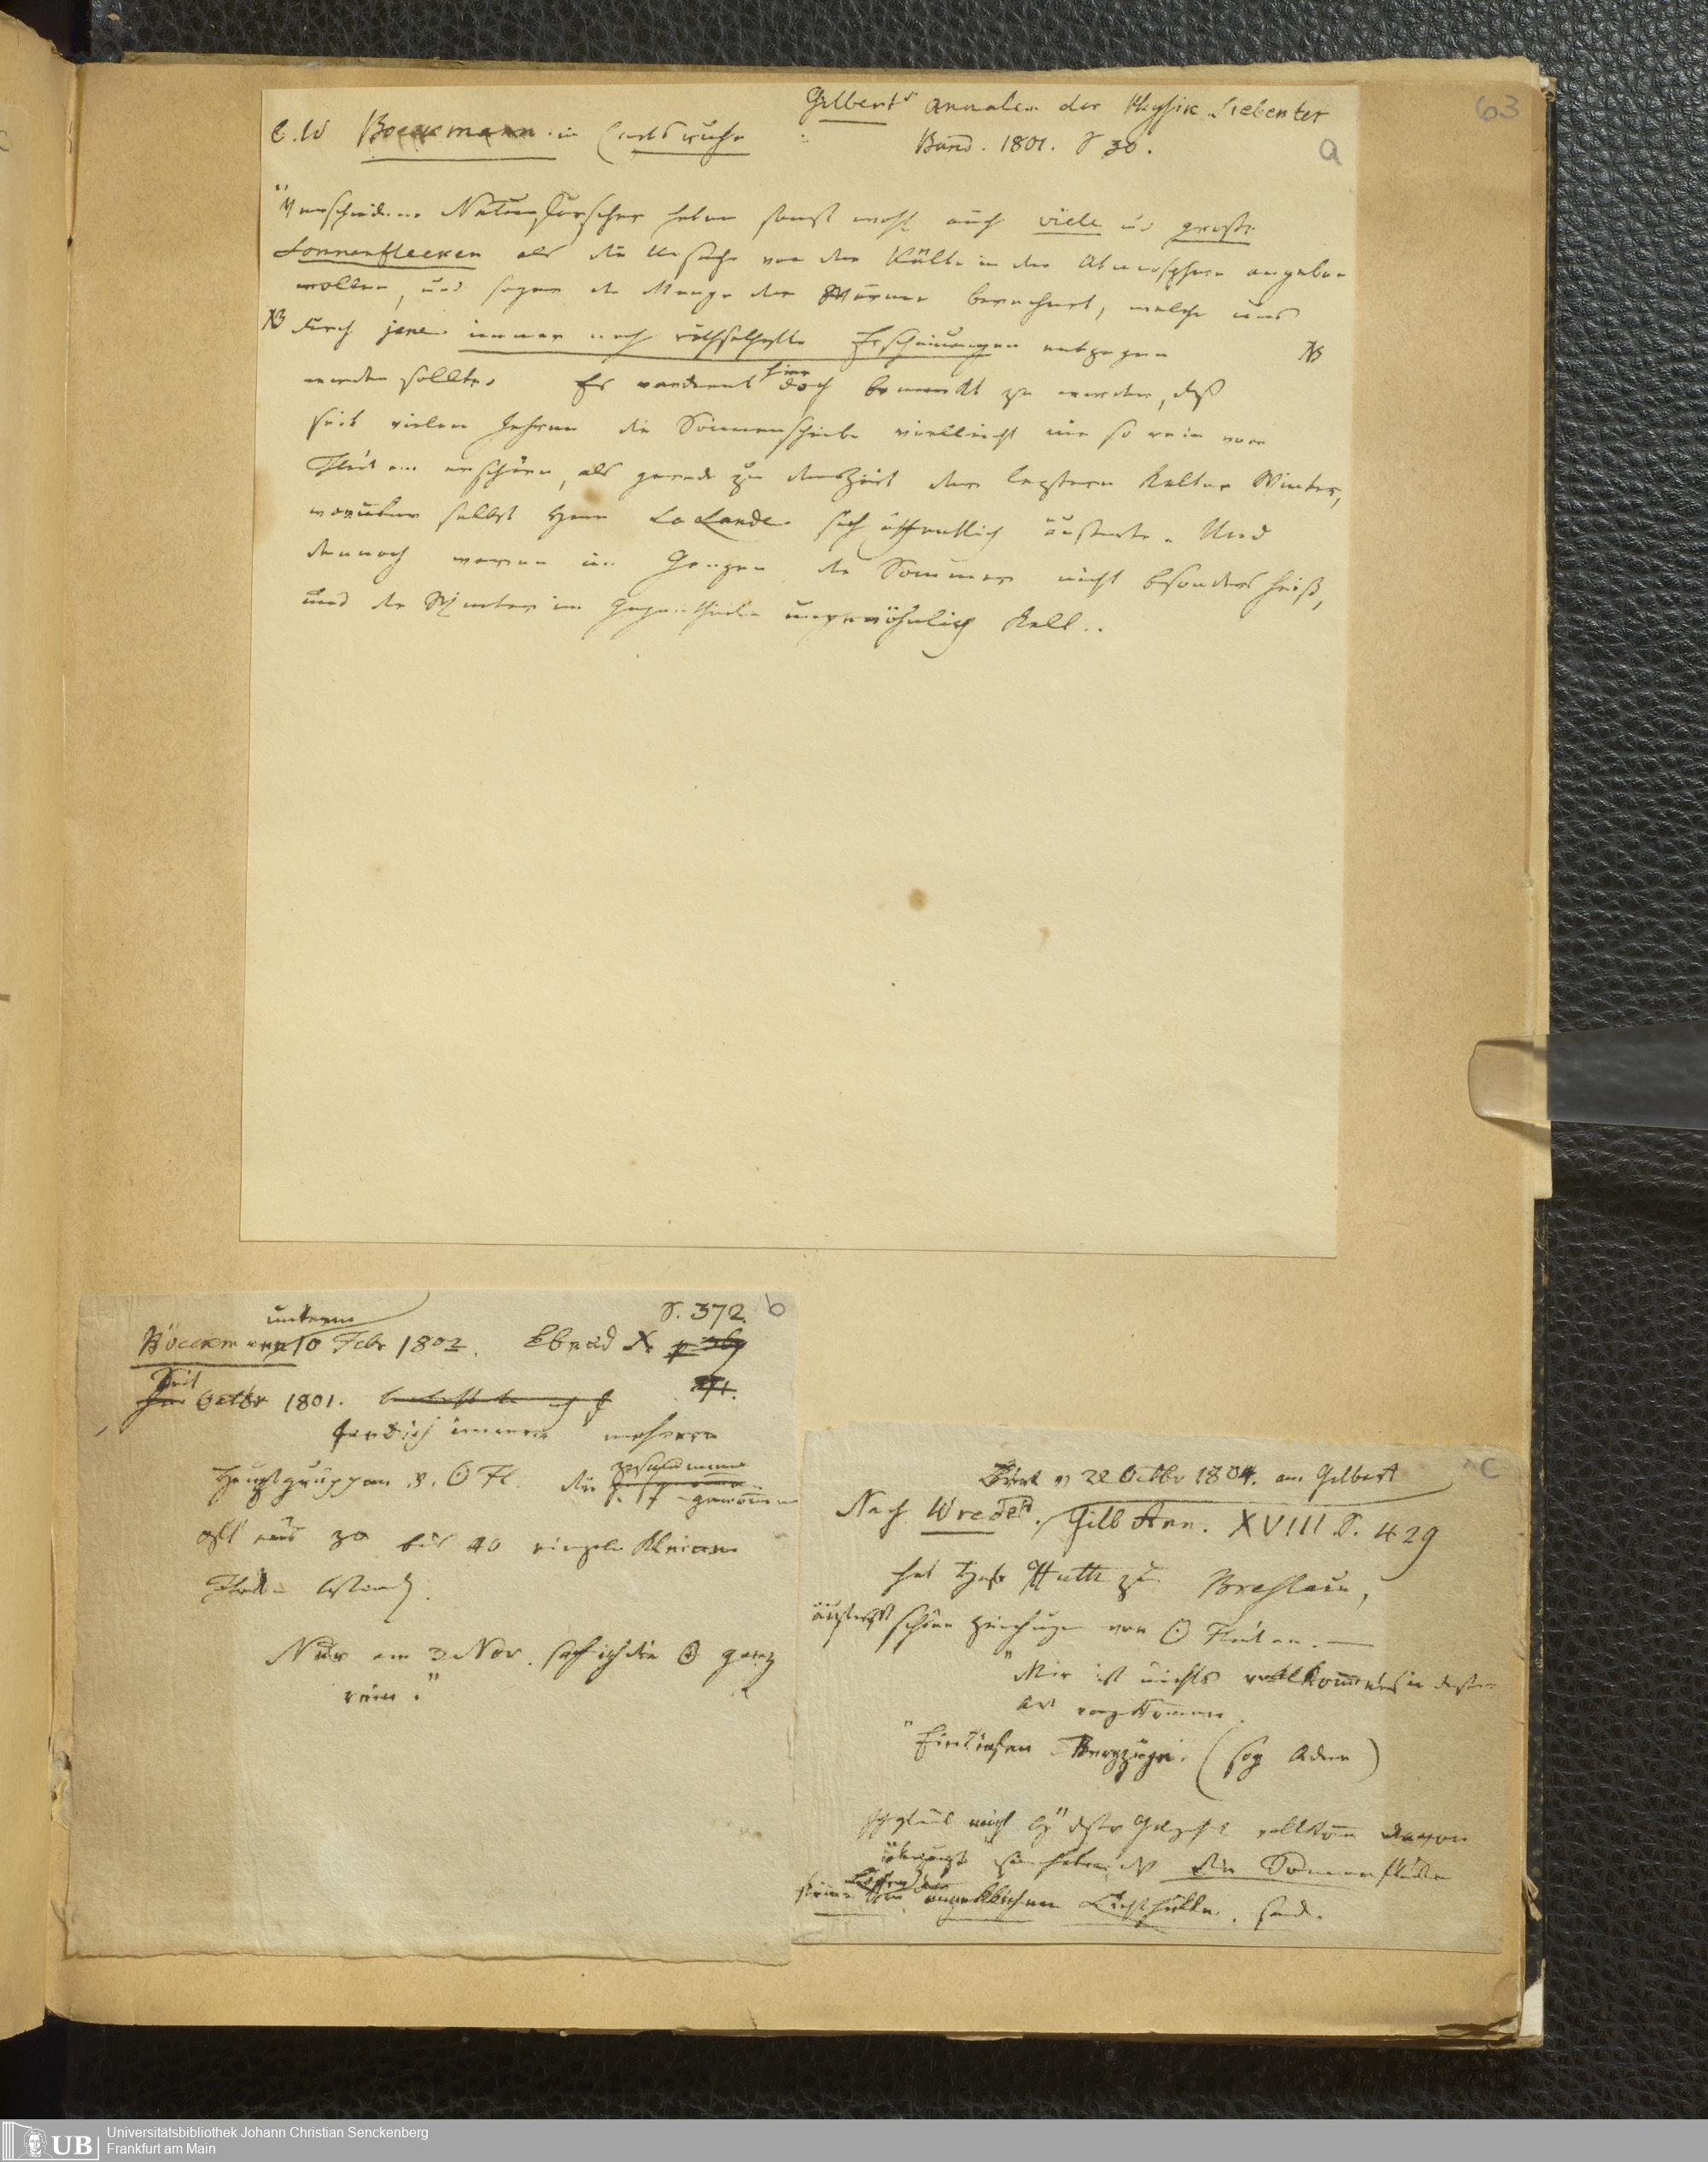 63
Gilberts Annalen der Physik Siebenter
C. W Boeckmann in Carlsruhe : Band. 1801. S 30.
a
"Verschiedene Naturforscher haben sonst wohl auch viele und grosse
Sonnenflecken als die Ursache von der Kälte in der Atmosphere angeben
wollen, und sogar die Menge der Wärme berechnet, welche uns
NB durch jene immer noch räthselhafte Erscheinungen entzogen NB
werden sollte. Es verdient hier doch bemerkt zu werden, daß
seit vielen Jahren die Sonnenscheibe vielleicht nie so rein von
Flecken erschien, als gerade zu der Zeit der leztern kalten Winter,
worüber selbst Herr La Lande sich öffentlich äusserte. Und
dennoch waren im Ganzen die Sommer nicht besonders heiß,
und die Winter im Gegentheile ungewöhnlich kalt..
b
S. 372.
unterm
Böckmann 10 Febr 1802. Ebend X.
Seit
Octbr 1801.
fand ich immer mehrere
Hauptgruppen v. ☉ Fl. die zusammen
genommen
oft aus 30 bis 40 einzeln kleinen
Flecken bestand.
Nur am 3 Nov. sah ich die ☉ ganz
rein."
c
Brief v 22 Octbr 1804. an Gilbert
Nach Wrede. Gilb Ann. XVIII S. 429
hat Herr Huth zu Breslau,
äusserst schöne Zeichnungen von ☉ Flecken. —
"Mir ist nichts vollkommneres in dieser
Art vorgekommen.
" (sog Adern)
die Sonnenflecken
keine
angeblichen Lichthülle. sind.
Universitätsbibliothek Johann Christian Senckenberg
Frankfurt am Main
UB